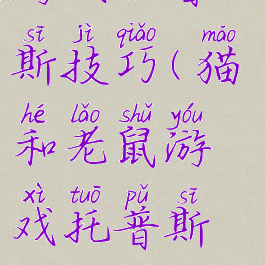 sī jì qiǎo māo
斯技巧(猫
hé lǎo shǔ yóu
和老鼠游
xì tuō pǔ sī
戏托普斯